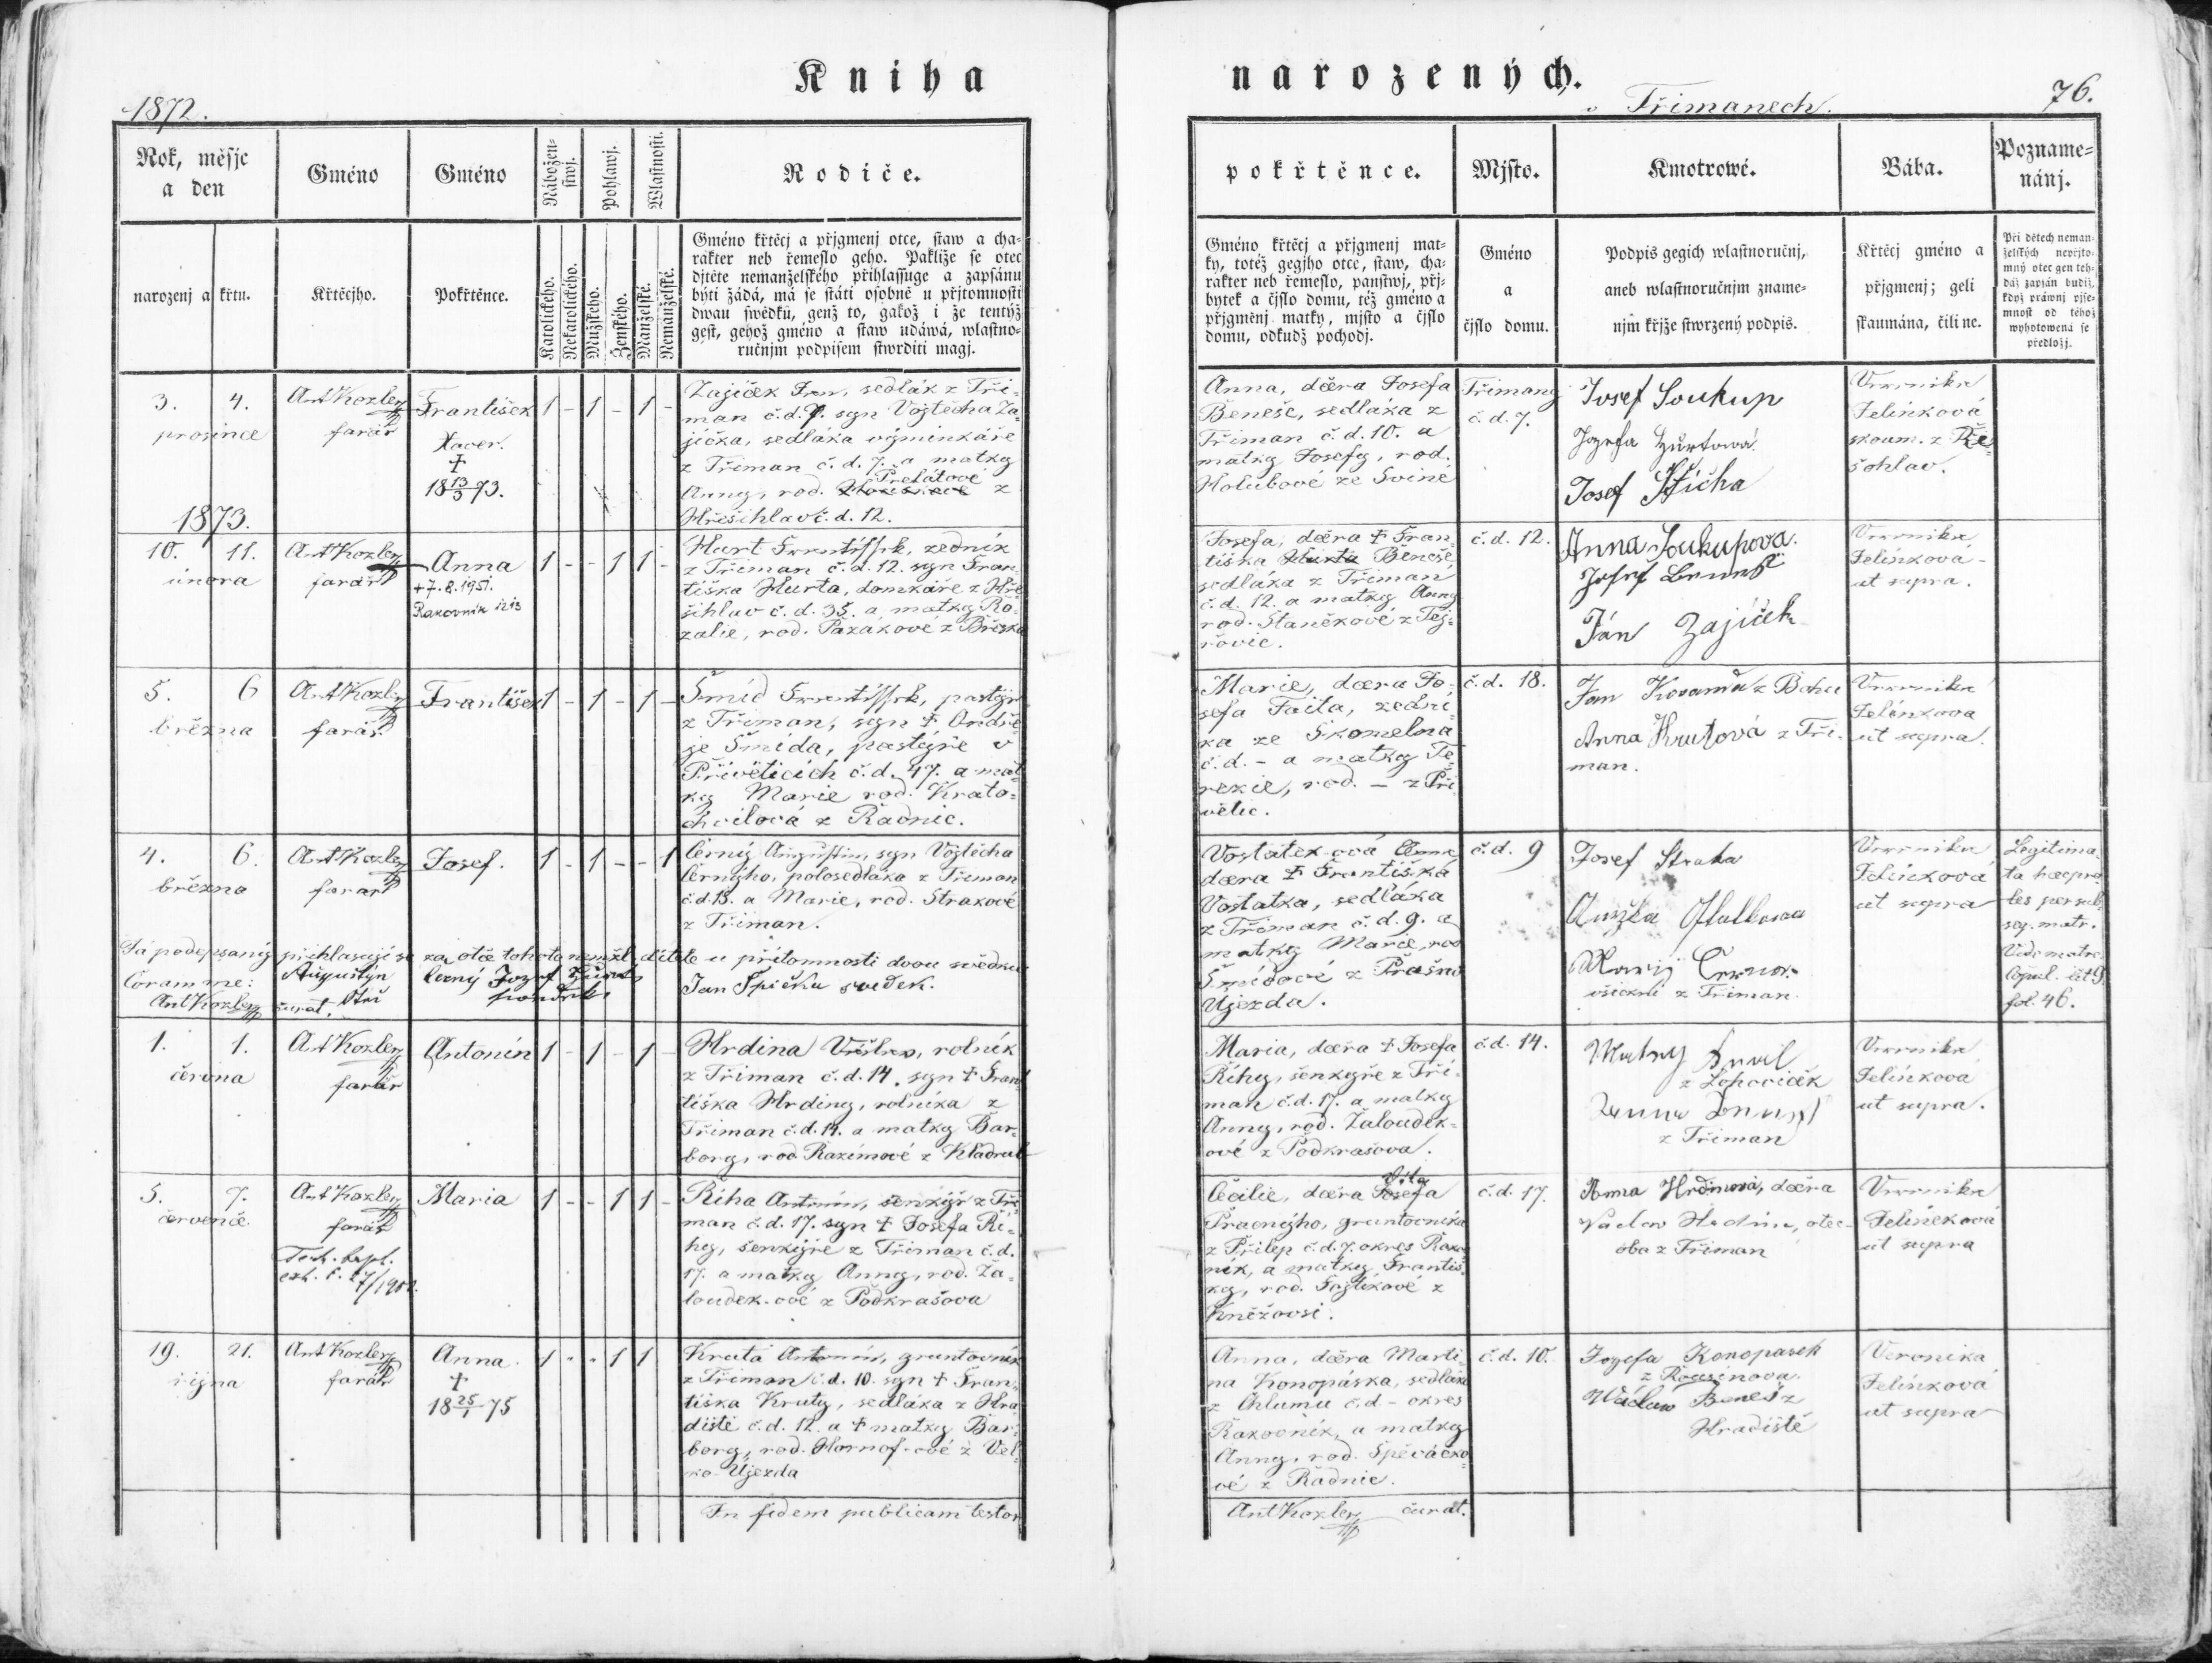 Kniha narozených.
1872.
v Třimanech.
76.
Rok, měsjc
a den
Gméno
Gméno
Nábožen-
stwj.
Pohlawj.
Wlastnosti.
Rodiče.
narozenj a křtu.
Křtěcjho.
Pokřtěnce.
Katolického.
Nekatolického.
Mužského.
Ženského.
Manželské.
Nemanželské.
Gméno křtěcj a přjgmenj otce, staw a cha-
rakter neb řemeslo geho. Pakliže se otec
djtěte nemanželského přihlassuge a zapsánu
býti žádá, má se státi osobně u přjtomnosti
dwau swědků, genž to, gakož i že tentýž
gest, gehož gméno a staw udáwá, wlastno-
ručnjm podpisem stwrditi magj.
pokřtěnce.
Mjsto.
Kmotrowé.
Bába.
Pozname-
nánj.
Gméno křtěcj a přjgmenj mat-
ky, totéž gegjho otce, staw, cha-
rakter neb řemeslo, panstwj, přj-
bytek a čjslo domu, též gméno a
přjgměnj matky, mjsto a čjslo
domu, odkudž pochodj.
Gméno
a
čjslo domu.
Podpis gegich wlastnoručnj,
aneb wlastnoručnjm zname-
njm křjže stwrzený podpis.
Křtěcj gméno a
přjgmenj; geli
skaumána, čili ne.
Při dětech neman-
želských nepřjto-
mný otec gen teh-
dáž zapsán budiž,
když práwnj pjse-
mnost od téhož
wyhotowená se
předložj.
3. 4.
prosince
Ant Kozler
farář
František
Xaver.
†
18 13/3 73.
1 - 1 - 1 -
Zajíček Fran, sedlák z Tři-
man č.d. 7. syn Vojtěcha Za-
jíčka, sedláka výminkáře
z Třiman č.d. 7. a matky
Přelátové
Anny, rod. z
Hřešihlav č.d. 12.
Anna, dcera Josefa
Beneše, sedláka z
Třiman č.d. 10. a
matky Josefy, rod.
Holubové ze Sviné
Třimany
č.d. 7.
Josef Soukup
Jozefa Hurtowá
Josef Stícha
Veronika
Jelínková
skoum. z Ře-
šohlav.
1873.
10. 11.
února
Ant Kozler
farář
Anna
+ 7.8.1951.
Rakovník
1 - - 1 1 -
Hurt František, zedník
z Třiman č.d. 12. syn Fran-
tiška Hurta, domkáře z Hře-
šihlav č.d. 35. a matky Ro-
zalie, rod. Pazákové z Březka
Josefa, dcera † Fran-
tiška Hurta Beneše
sedláka z Třiman
č.d. 12. a matky Anny
rod. Staněkové z Tej-
řovic.
č.d. 12.
Anna Soukupova.
Josef Beneš
Ján Zajíček
Veronika
Jelínková -
ut supra.
5. 6
března
Ant Kozler
farář
František
1 - 1 - 1 -
Šmíd František, pastýř
z Třiman, syn † Ondře-
je Šmída, pastýře v
Přívěticích č.d. 47. a mat-
ky Marie rod. Krato-
chvilová z Radnic.
Marie, dcera Jo-
sefa Faita, zední-
ka ze Skomelna
č.d. - a matky Te-
rezie, rod. - z Pří-
větic.
č.d. 18.
Jan Kovanda z Bohu
Anna Krutová z Tři-
man.
Veronika
Jelínková
ut supra.
4. 6.
března
Ant Kozler
farář
Josef.
1 - 1 - - 1
Černý Augustin, syn Vojtěcha
Černýho, polosedláka z Třiman
č.d. 13. a Marie, rod. Strakové
z Třiman.
Vostatek-ová Anna
dcera † Františka
Vostatka, sedláka
z Třiman č.d. 9. a
matky Marie, rod
Šmídové z Prašno
Újezda.
č.d. 9
Josef Straka
všickni z Třiman.
Veronika
Jelínková
ut supra
Legitima-
ta haec pro-
les per sub-
seq. matr.
Vide matric.
Copul.
fol. 46.
Já podepsaný přihlasuji se za otce tohoto nemžl. dítěte u přítomnosti dvou svědků
Coram me: Augustýn Černý
Ant Kozler curat.
Jan Špička svědek.
1. 1.
června
Ant Kozler
farář
Antonín
1 - 1 - 1 -
Hrdina Václav, rolník
z Třiman č.d. 14. syn † Fran-
tiška Hrdiny, rolníka z
Třiman č.d. 14. a matky Bar-
bory, rod Razimové z Kladrub
Maria, dcera † Josefa
Říhy, šenkýře z Tři-
man č.d. 17. a matky
Anny, rod. Žaloudek-
ové z Podkrašova.
č.d. 14.
z Lohoviček
z Třiman
Veronika
Jelínková
ut supra.
5. 7.
července
Ant Kozler
farář
Test. bapt.
ext. č. 27/1902.
Maria
1 - - 1 1 -
Říha Antonín, šenkýř z Tři-
man č.d. 17. syn † Josefa Ří-
hy, šenkýře z Třiman č.d.
17. a matky Anny, rod. Ža-
loudek-ové z Podkrašova
Víta
Cecilie, dcera Josefa
Pracnýho, gruntovníka
z Přílep č.d. 7. okres Rako-
ník, a matky Františ-
ky, rod. Fojtíkové z
Kněžovsi.
č.d. 17.
Anna Hrdinová, dcera
Václav Hrdina, otec
oba z Třiman
Veronika
Jelínková
ut supra
19. 21.
října
Ant Kozler
farář
Anna.
†
18 25/1 75
1 - - 1 1
Kruta Antonín, gruntovník
z Třiman č.d. 10. syn † Fran-
tiška Kruty, sedláka z Hra-
diště č.d. 12. a † matky Bar-
bory, rod. Hornof-ové z Vel-
ko-Újezda
Anna, dcera Marti-
na Konopáska, sedláka
z Chlumu č.d - okres
Rakovník, a matky
Anny, rod. Špěváčko-
vé z Radnic.
č.d. 10.
Jozefa Konopasek
z Rousínova.
Wáclaw Beneš z
Hradiště
Veronika
Jelínková
ut supra
In fidem publicam testor
Ant Kozler curat.